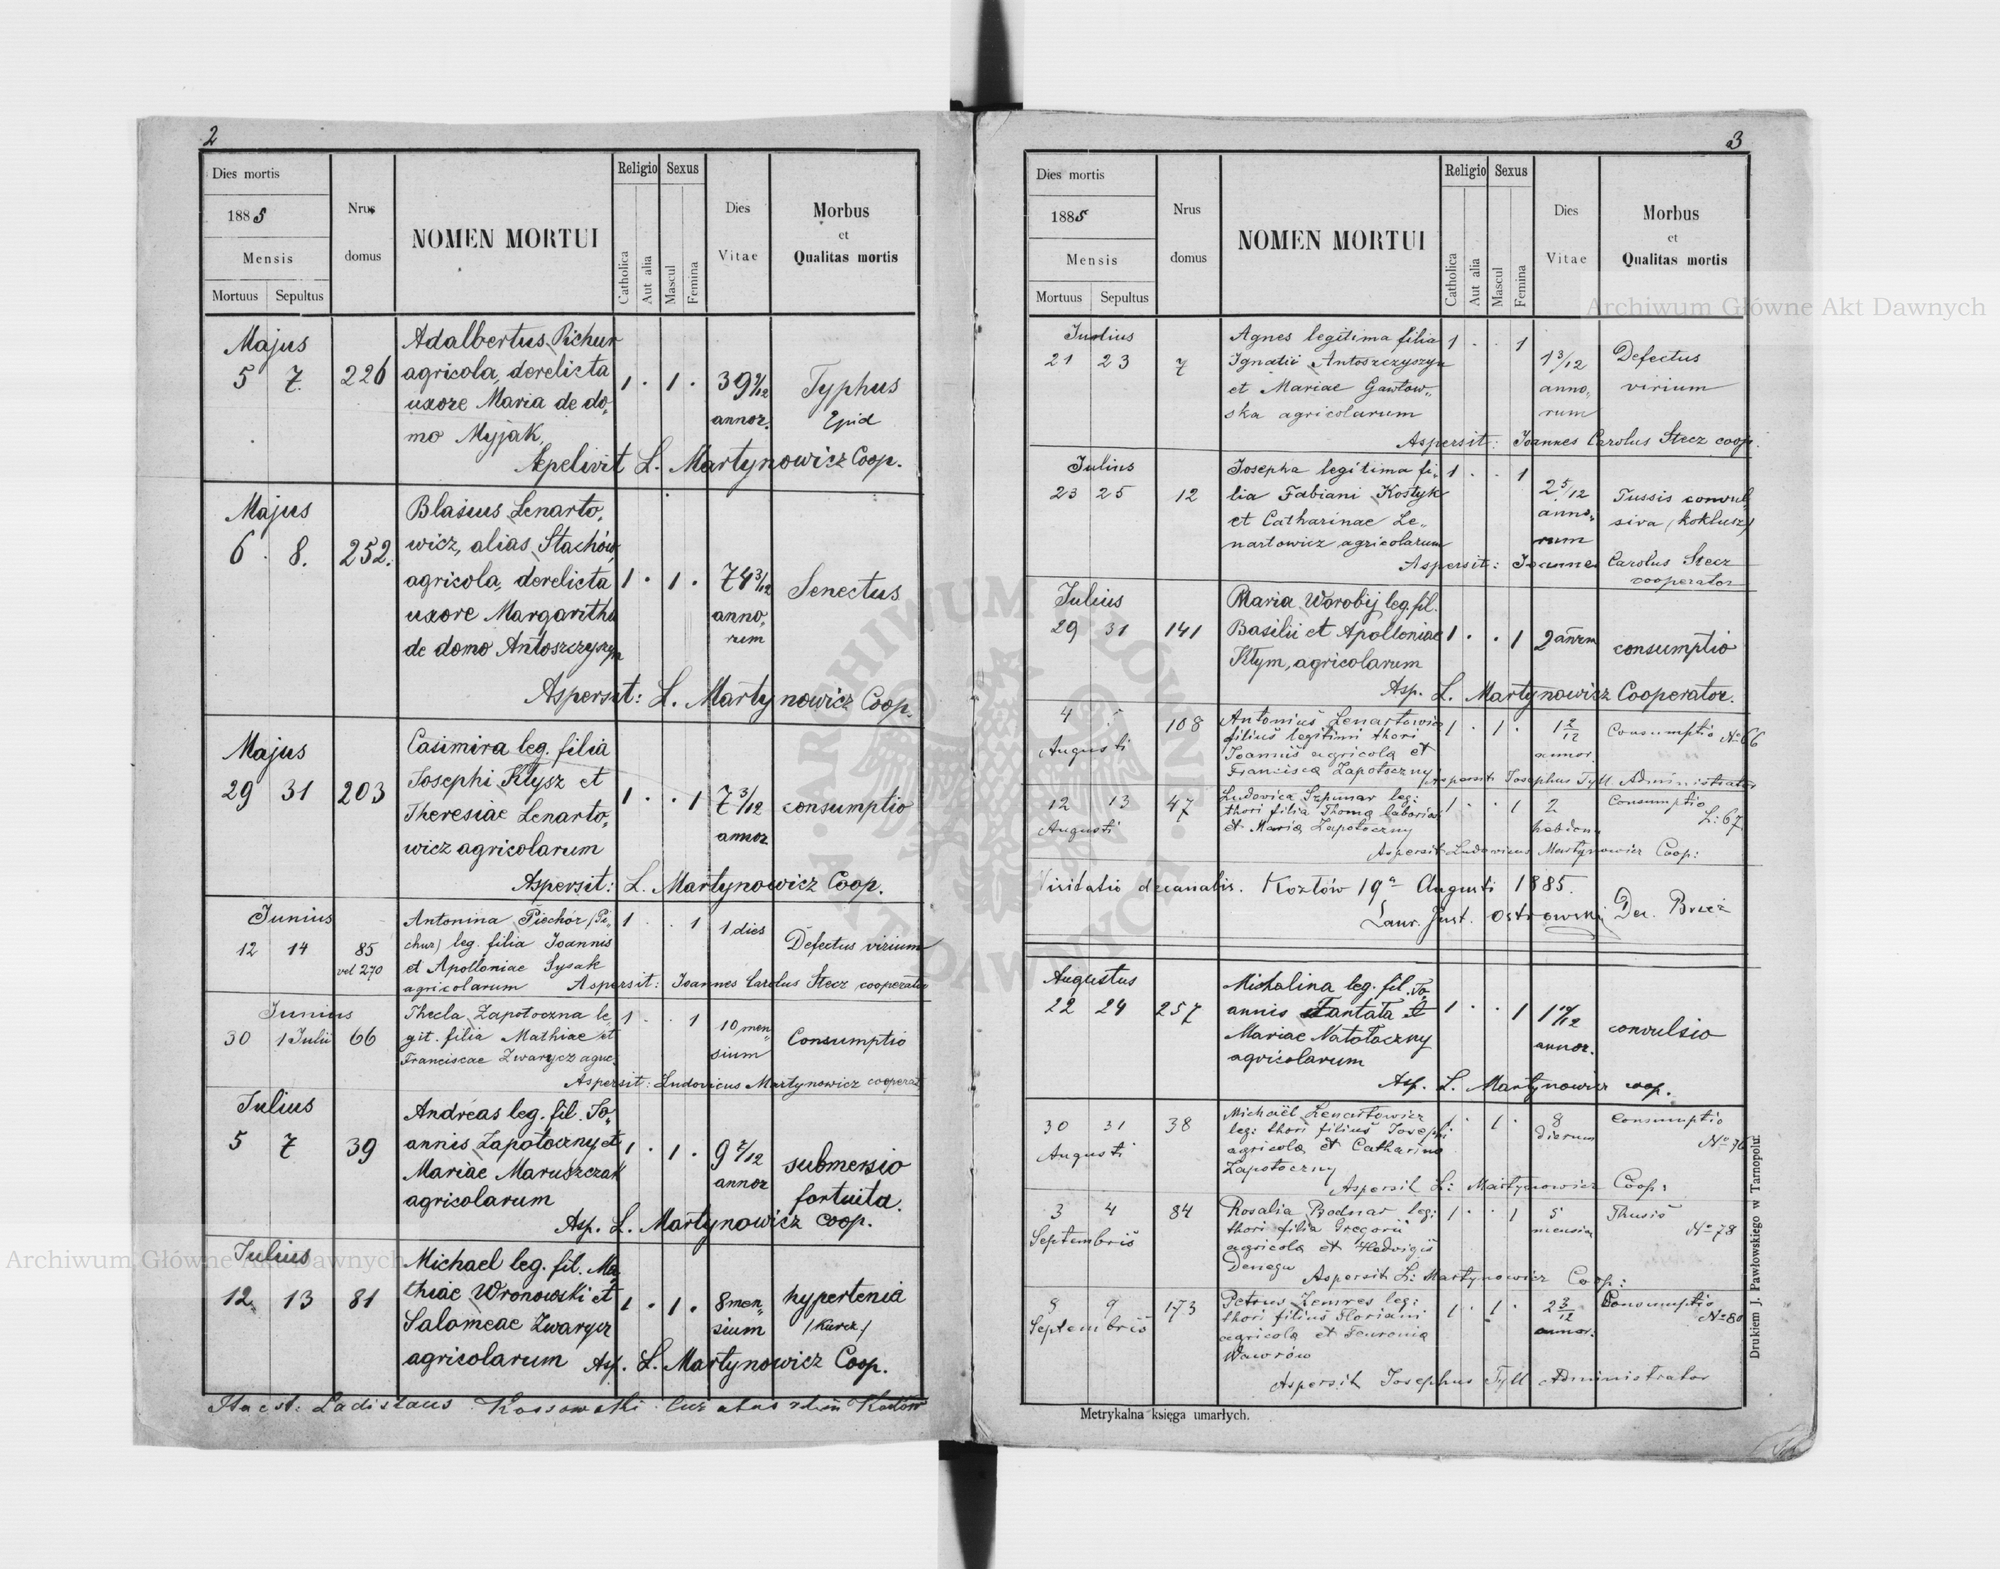 2
Dies mortis
1885
Mensis
Mortuus Sepultus
Nrus
domus
NOMEN MORTUI
Religio
Catholica
Aut alia
Sexus
Mascul
Femina
Dies
Vitae
Morbus
et
Qualitas mortis
Majus
5 7. 226
Adalbertus Pichur
agricola, derelicta
uxore Maria de do-
mo Myjak,
1 . 1 .
39 9/12
annor.
Typhus
Epid
Apelivit L. Martynowicz Coop.
Majus
6 . 8. 252.
Blasius Lenarto-
wicz, alias Stachów
agricola, derelicta
uxore Margaritha
de domo Antoszczyszyn
1 . 1 .
74 3/12
anno-
rum
Senectus
Aspersit: L. Martynowicz Coop.
Majus
29 31 203
Casimira leg. filia
Josephi Kłysz et
Theresiae Lenarto-
wicz agricolarum
1 . . 1
7 3/12
annor
consumptio
Aspersit: L. Martynowicz Coop.
Junius
12 14 85
vel 270
Antonina Piechór (Pi-
chur) leg. filia Joannis
et Apolloniae Sysak
agricolarum
1 . . 1
1 dies
Defectus virium
Aspersit: Joannes Carolus Stecz cooperator
Junius
30 1 Julii 66
Thecla Zapotoczna le-
git. filia Mathiae et
Franciscae Zwarycz agric.
1 . . 1
10 men-
sium
Consumptio
Aspersit: Ludovicus Martynowicz cooperat
Julius
5 7 39
Andreas leg. fil. Jo-
annis Zapotoczny et
Mariae Maruszczak
agricolarum
1 . 1 .
9 7/12
annor
submersio
fortuita.
Asp. L. Martynowicz coop.
Julius
12. 13 81
Michael leg. fil. Ma-
thiae Wronowski et
Salomeae Zwarycz
agricolarum
1 . 1 .
8 men-
sium
hypertenia
/Kurcz/
Asp. L. Martynowicz Coop.
Ladislaus Kossowski
3
Dies mortis
1885
Mensis
Mortuus Sepultus
Nrus
domus
NOMEN MORTUI
Religio
Catholica
Aut alia
Sexus
Mascul
Femina
Dies
Vitae
Morbus
et
Qualitas mortis
Julius
21 23 7
Agnes legitima filia
Ignatii Antoszczyszyn
et Mariae Gawłow-
ska agricolarum
1 . . 1
1 3/12
anno-
rum
Defectus
virium
Aspersit: Joannes Carolus Stecz coop.
Julius
23 25 12
Josepha legitima fi-
lia Fabiani Kostyk
et Catharinae Le-
nartowicz agricolarum
1 . . 1
2 5/12
anno-
rum
Tussis convul-
siva (koklusz)
Aspersit: Joannes Carolus Stecz
cooperator
Julius
29 31 141
Maria Worobij, leg. fil.
Basilii et Apolloniae
Kłym, agricolarum
1 . . 1
2 annrm
consumptio
Asp. L. Martynowicz Cooperator.
4 5 108
Augusti
Antonius Lenartowicz
filius legitimi thori
Joannis agricola et
Francisca Zapotoczny
1 . 1 .
1 2/12
annor.
Consumptio No 66
Aspersit Josephus Tyll Administrator
12 13 47
Augusti
Ludovica Szpunar leg:
thori filia Thoma laborios
et Maria Zapotoczny
1 . . 1
2
hebdom
Consumptio
L: 67.
Aspersit Ludovicus Martynowicz Coop:
Visitatio decanalis. Kozłów 19a Augusti 1885.
Laur. Just. Ostrowski Dec. Brzeż
Augustus
22 24 257
Michalina leg. fil. Jo-
annis Fantata et
Mariae Natołoczny
agricolarum
1 . . 1
1 10/12
annor.
convulsio
Asp. L. Martynowicz coop.
30 31 38
Augusti
Michaël Lenartowicz
leg: thori filius Josephi
agricola et Catharina
Zapotoczny
1 . 1 .
8
dierum
Consumptio
No 76
Aspersit L: Martynowicz Coop:
3 4 84
Septembris
Rosalia Bodnar leg:
thori filia Gregorii
agricola et Hedvigis
Denega
1 . . 1
5
mensia
Thusis
No 78
Aspersit L: Martynowicz Coop:
8 9 173
Septembris
Petrus Zemres leg:
thori filius Floriani
agricola et Feuronia
Wawrów
1 . 1 .
2 3/12
annor.
Consumptio
No 80
Aspersit Josephus Tyll Administrator
Metrykalna księga umarłych.
Drukiem J. Pawłowskiego w Tarnopolu.
Archiwum Główne Akt Dawnych
Archiwum Główne Akt Dawnych
ARCHIWUM GŁÓWNE AKT DAWNYCH